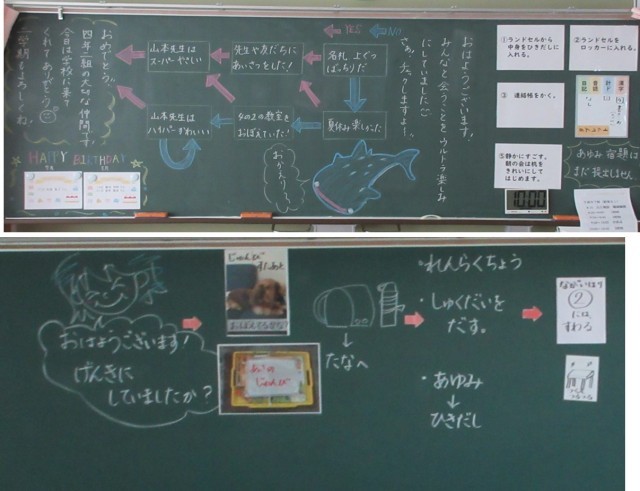 YES
NO
おはようございます。
みんなと会うことをウルトラ楽しみ
にしていました
名札、上ぐつ
ばっちりだ
夏休み楽しかった
先生や友だちに
あいさつをした!
4の2の教室を
おぼえていた!
山本先生は
スーパーやさしい
山本先生は
ハイパーかわいい
おかえり
おめでとう。
四年二組の大切な仲間です。
今日は学校に来て
くれてありがとう
二学期もよろしくね。
HAPPY BIRTHDAY
①ランドセルから
中身をひきだしに
入れる。
②ランドセルを
ロッカーに入れる。
③ 連絡帳をかく。
⑤静かにすごす。
朝の会は机を
きれいにして
はじめます。
漢字
計ド
音読
日記
あゆみ、宿題は
まだ提出しません。
おはようございます!
げんきに
していましたか?
じゅんび
あさの
じゅんび
たなへ
・れんらくちょう
・しゅくだいを
だす。
・あゆみ
ひきだし
ながいはり
②
には、
すわる